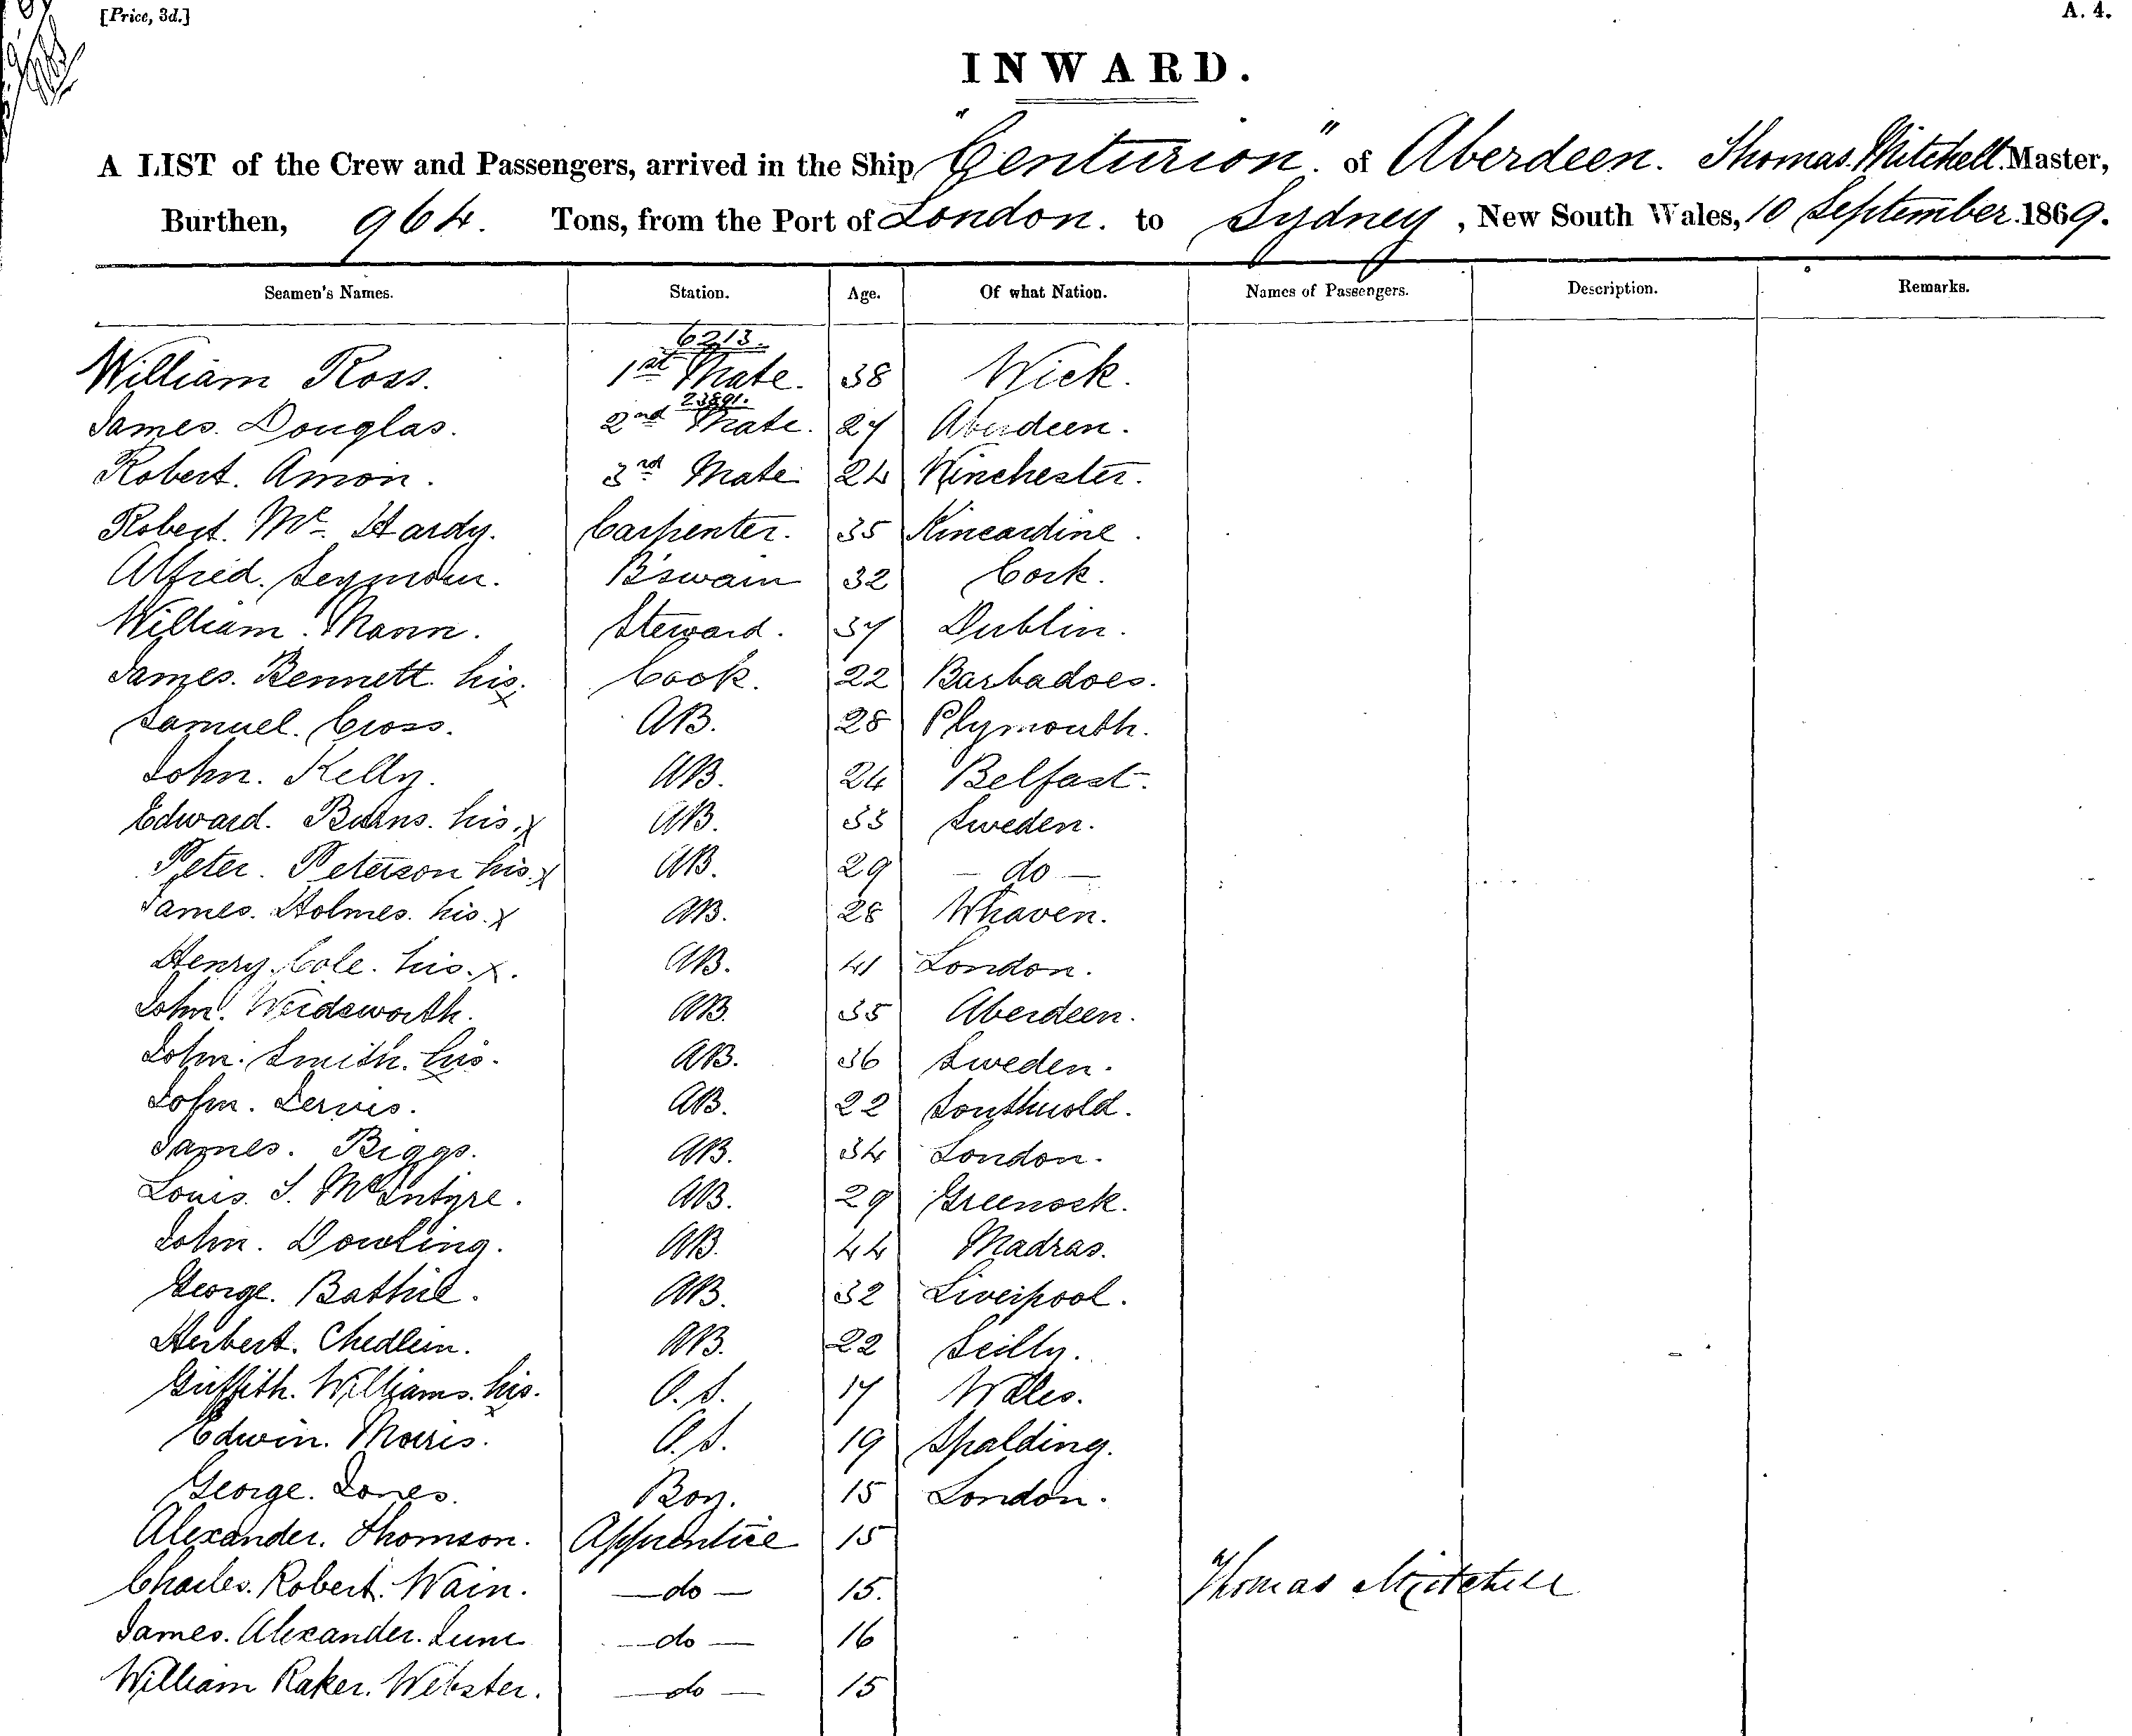 [Price, 3d.] A. 4.
INWARD.
A LIST of the Crew and Passengers, arrived in the Ship "Centurion" of Aberdeen. Thomas Mitchell. Master,
Burthen, 964. Tons, from the Port of London. to Sydney, New South Wales, 10 September. 1869.
Seamen's Names. Station. Age. Of what Nation. Names of Passengers. Description. Remarks.
6213.
William Ross. 1st Mate. 38 Wick.
23891.
James. Douglas. 2nd Mate. 27 Aberdeen.
Robert. Amon. 3rd Mate 24 Winchester.
Robert. Mc Hardy. Carpenter. 35 Kincardine.
Alfred. Seymour. B'swain 32 Cork.
William. Mann. Steward. 37 Dublin.
James. Bennett his x Cook. 22 Barbadoes.
Samuel. Cross. AB. 28 Plymouth.
John. Kelly. AB. 24 Belfast.
Edward. Burns. his x AB. 33 Sweden.
Peter. Peterson his x AB. 29 — do —
James. Holmes. his x AB. 28 Whaven.
Henry. Cole. his. x. AB. 41 London.
John. Wordsworth. AB. 35 Aberdeen.
John. Smith. his. x AB. 36 Sweden.
John. AB. 22 Southwold.
James. Biggs. AB. 34 London.
Louis. S. McIntyre. AB. 29 Greenock.
John. Dowling. AB. 44 Madras.
George. AB. 32 Liverpool.
Herbert. AB. 22 Scilly.
Griffith. Williams. his. x O. S. 17 Wales.
Edwin. Morris. O. S. 19 Spalding.
George. Jones. Boy. 15 London.
Alexander. Thomson. Apprentice 15
Charles. Robert. Wain. — do — 15. Thomas Mitchell
James. Alexander. — do — 16
William Raker. Webster. — do — 15